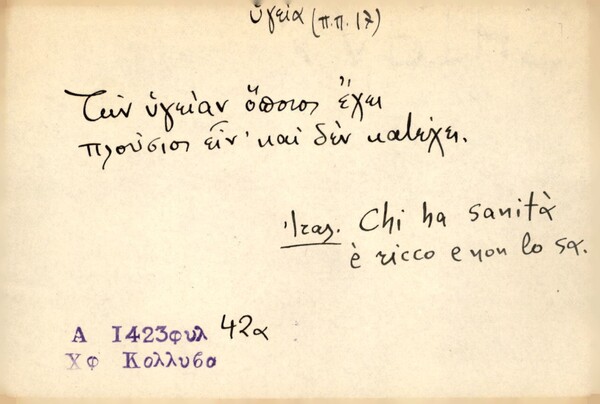 ὑγεία (π.π. 17)
Τὴν ὑγείαν ὅποιος ἔχει
πλούσιος εἶν' καὶ δὲν κατέχει.
Ἰταλ. Chi ha sanità
è ricco e non lo sa.
Α 1423φυλ 42α
Χφ Κολλυβα